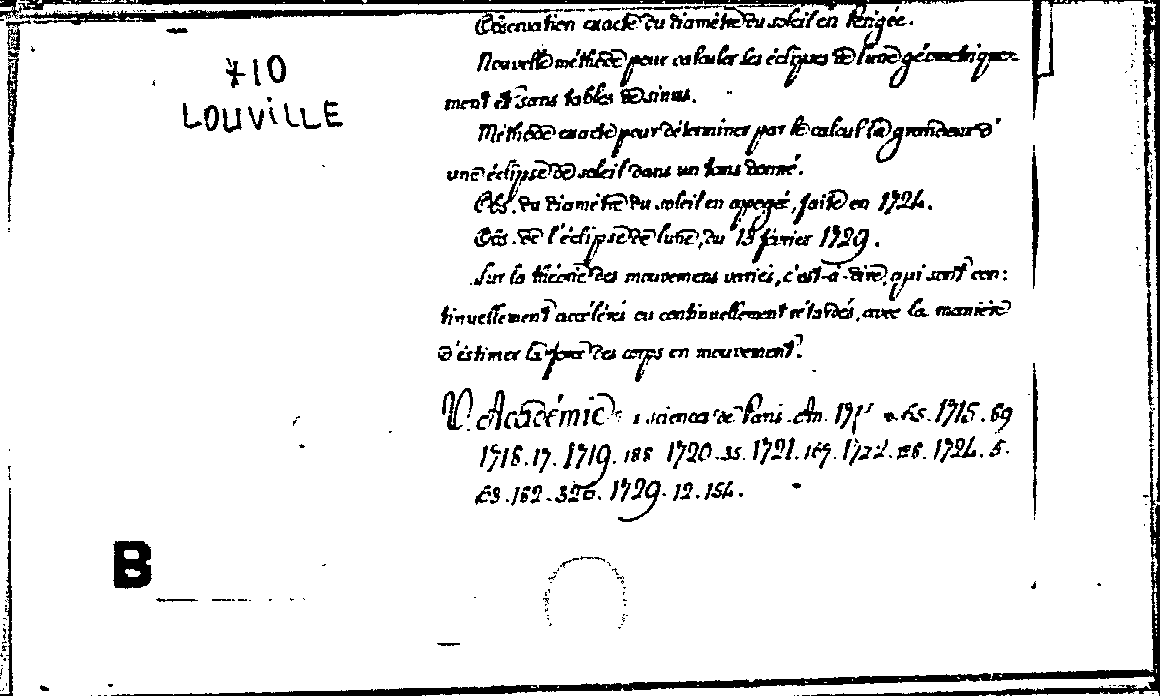 710
LOUVILLE
Observation exacte du diamètre du soleil en Périgée.
Nouvelle méthode pour calculer les éclipses de lune géometrique-
ment et sans tables de sinus.
Méthode exacte pour déterminer par le calcul la grandeur d'
une éclipse de soleil dans un tems donné.
Obs. du diamètre du soleil en apogée, faite en 1724.
Obs. de l'éclipse de lune, du 13 février 1729.
Sur la théorie des mouvemens variés, c'est-à-dire, qui sont con:
tinuellement accélérés ou continuellement retardés, avec la manière
d'éstimer la force des corps en mouvement.
V. Académie sciences de Paris. An. 65. 1715. 89
1718. 17. 1719. 188 1720. 35. 1721. 167. 1722. 1724. 5.
63. 162. 326. 1729. 12. 154.
B